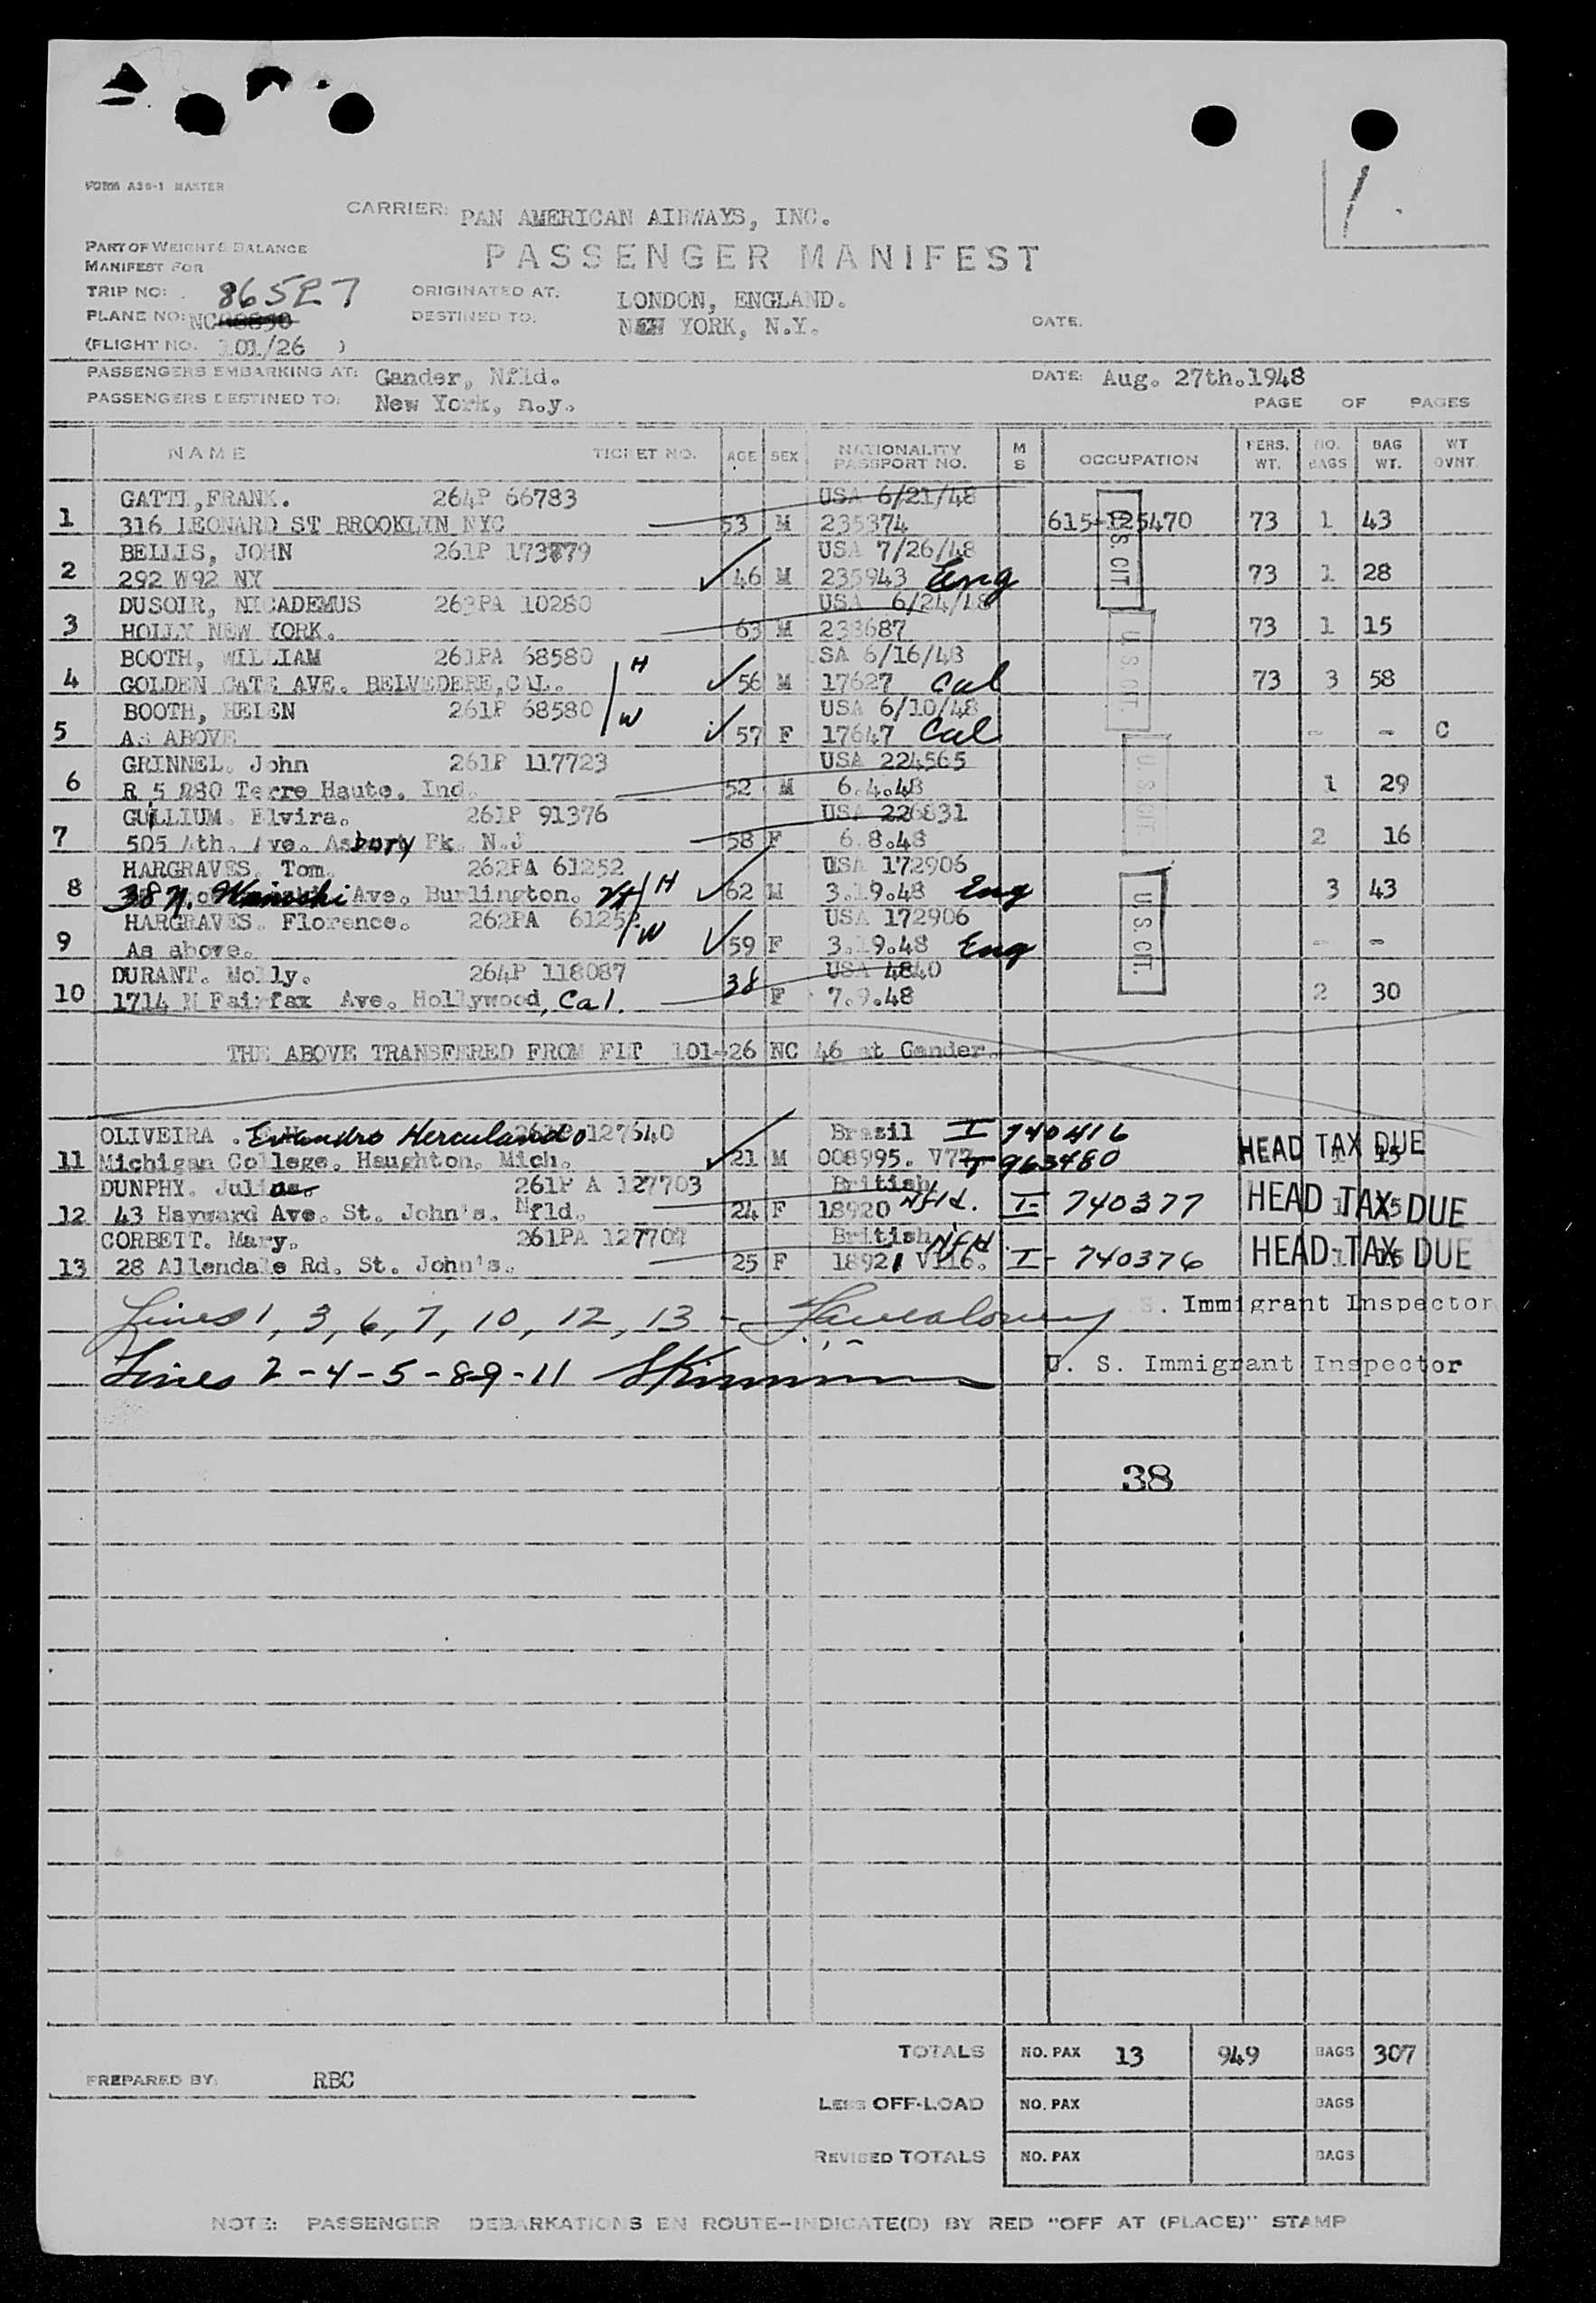 1.
FORM A30-1 MASTER
CARRIER: PAN AMERICAN AIRWAYS, INC.
PART OF WEIGHT & BALANCE
MANIFEST FOR
PASSENGER MANIFEST
TRIP NO: 86527
ORIGINATED AT. LONDON, ENGLAND.
PLANE NO: NC
DESTINED TO. NEW YORK, N.Y.
DATE.
(FLIGHT NO. 101/26 )
PASSENGERS EMBARKING AT: Gander, Nfld.
DATE: Aug. 27th.1948
PASSENGERS DESTINED TO: New York, n.y.
PAGE OF PAGES
NAME TICKET NO. AGE SEX NATIONALITY PASSPORT NO. M S OCCUPATION PERS. WT. NO. BAGS BAG WT. WT OVNT.
GATTI,FRANK. 264P 66783 USA 6/21/48
1 316 LEONARD ST BROOKLYN NYC 53 M 235374 615-125470 73 1 43
BELLIS, JOHN 261P 173779 USA 7/26/48
2 292 W92 NY 46 M 235943 Eng 73 1 28
U.S. CIT.
DUSOIR, NICADEMUS 263PA 10280 USA 6/24/48
3 HOLLY NEW YORK. 63 M 233687 73 1 15
BOOTH, WILLIAM 261PA 68580 H SA 6/16/48
4 GOLDEN GATE AVE. BELVEDERE,CAL. 56 M 17627 Cal 73 3 58
U.S. CIT.
BOOTH, HELEN 261P 68580 W USA 6/10/48
5 AS ABOVE 57 F 17647 Cal - - C
GRINNEL. John 261P 117723 USA 224565
6 R 5 280 Terre Haute. Ind. 52 M 6.4.48 1 29
U.S. CIT.
GULLIUM. Elvira. 261P 91376 USA 226831
7 505 4th. Ave. Asbury Pk. N.J 58 F 6.8.48 2 16
HARGRAVES. Tom. 262PA 61252 USA 172906
8 38 N. Winooski Ave. Burlington. Vt H 62 M 3.19.48 Eng 3 43
HARGRAVES. Florence. 262PA 61252 W USA 172906
9 As above. 59 F 3.19.48 Eng - -
U.S. CIT.
DURANT. Molly. 264P 118087 USA 4840
10 1714 N Fairfax Ave. Hollywood, Cal. 38 F 7.9.48 2 30
THE ABOVE TRANSFERED FROM FLT 101-26 NC 46 at Gander.
OLIVEIRA . Evandro Herculando 261P 127640 Brazil I 740416
11 Michigan College. Haughton. Mich. 21 M 008995. V77 I 963480 HEAD TAX DUE 15
DUNPHY. Julia 261P A 127703 British
12 43 Hayward Ave. St. John's. Nfld. 24 F 18920 Nfld. I- 740377 HEAD TAX DUE 1
CORBETT. Mary. 261PA 127707 British Nfld
13 28 Allendale Rd. St. John's. 25 F 18921 VP16. I- 740376 HEAD TAX DUE 1
Lines 1, 3, 6, 7, 10, 12, 13 -
S. Immigrant Inspector
Lines 2-4-5-8-9-11
U. S. Immigrant Inspector
38
TOTALS NO. PAX 13 949 BAGS 307
PREPARED BY: RBC
LESS OFF-LOAD NO. PAX BAGS
REVISED TOTALS NO. PAX BAGS
NOTE: PASSENGER DEBARKATIONS EN ROUTE-INDICATE(D) BY RED "OFF AT (PLACE)" STAMP